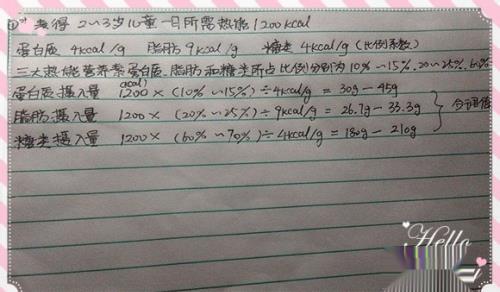 ① 查得 2~3岁儿童一日所需热能1200kcal
蛋白质 4kcal/g 脂肪 9kcal/g 糖类 4kcal/g (比例系数)
三大热能营养素蛋白质.脂肪和糖类所占比例分别为10%~15%.20~25%.60%
蛋白质摄入量 1200 × (10%~15%)÷4kcal/g = 30g-45g
脂肪摄入量 1200 × (20%~25%)÷9kcal/g = 26.7g-33.3g
糖类摄入量 1200 × (60%~70%)÷4kcal/g = 180g-210g
Hello